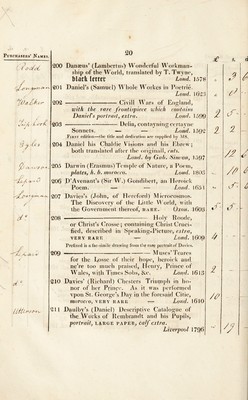 20
PURCHASERS' NAMES.
£ s d
Rodd 200 Danæus' (Lambertus) Wonderful Workman-
ship of the World, translated by T. Twyne,
black letter Lond. 1578
Longman 201 Daniel's (Samuel) Whole Workes in Poetrié.
Lond. 1623
Walker 202 ——— Civil Wars of England,
with the rare frontispiece which contains
Daniel's portrait, extra. Lond. 1599 2 5
203 ——— Delia, contayning certayne
Sonnets. — — Lond. 1592 2 2
First edition—the title and dedication are supplied by MS.
204 Daniel his Chaldie Visions and his Ebrew;
both translated after the original, cuts.
Lond. by Geh. Simson, 1597
205 Darwin (Erasmus) Temple of Nature, a Poem,
plates, h. b. morocco. Lond. 1803
206 D'Avenant's (Sir W.) Gondibert, an Heroick
Poem. — — Lond. 1651
Longman 207 Davies's (John, of Hereford) Microcosmos.
The Discovery of the Little World, with
the Government thereof, RARE. Oxon. 1603 5 5
do 208 ——— Holy Roode,
or Christ's Crosse; containing Christ Cruci-
fied, described in Speaking-Picture, extra,
VERY RARE — Lond. 1609 4
Prefixed is a fac-simile drawing from the rare portrait of Davies.
209 ——— Muses' Teares
for the Losse of their hope, heroick and
ne're too much praised, Henry, Prince of
Wales, with Times Sobs, &c. Lond. 1613 2
do 210 Davies' (Richard) Chesters Triumph in ho-
nor of her Prince. As it was performed
vpon St. George's Day in the foresaid Citie,
morocco, VERY RARE — Lond. 1610 10
211 Daulby's (Daniel) Descriptive Catalogue of
the Works of Rembrandt and his Pupils,
portrait, LARGE PAPER, calf extra.
Liverpool 1796 19